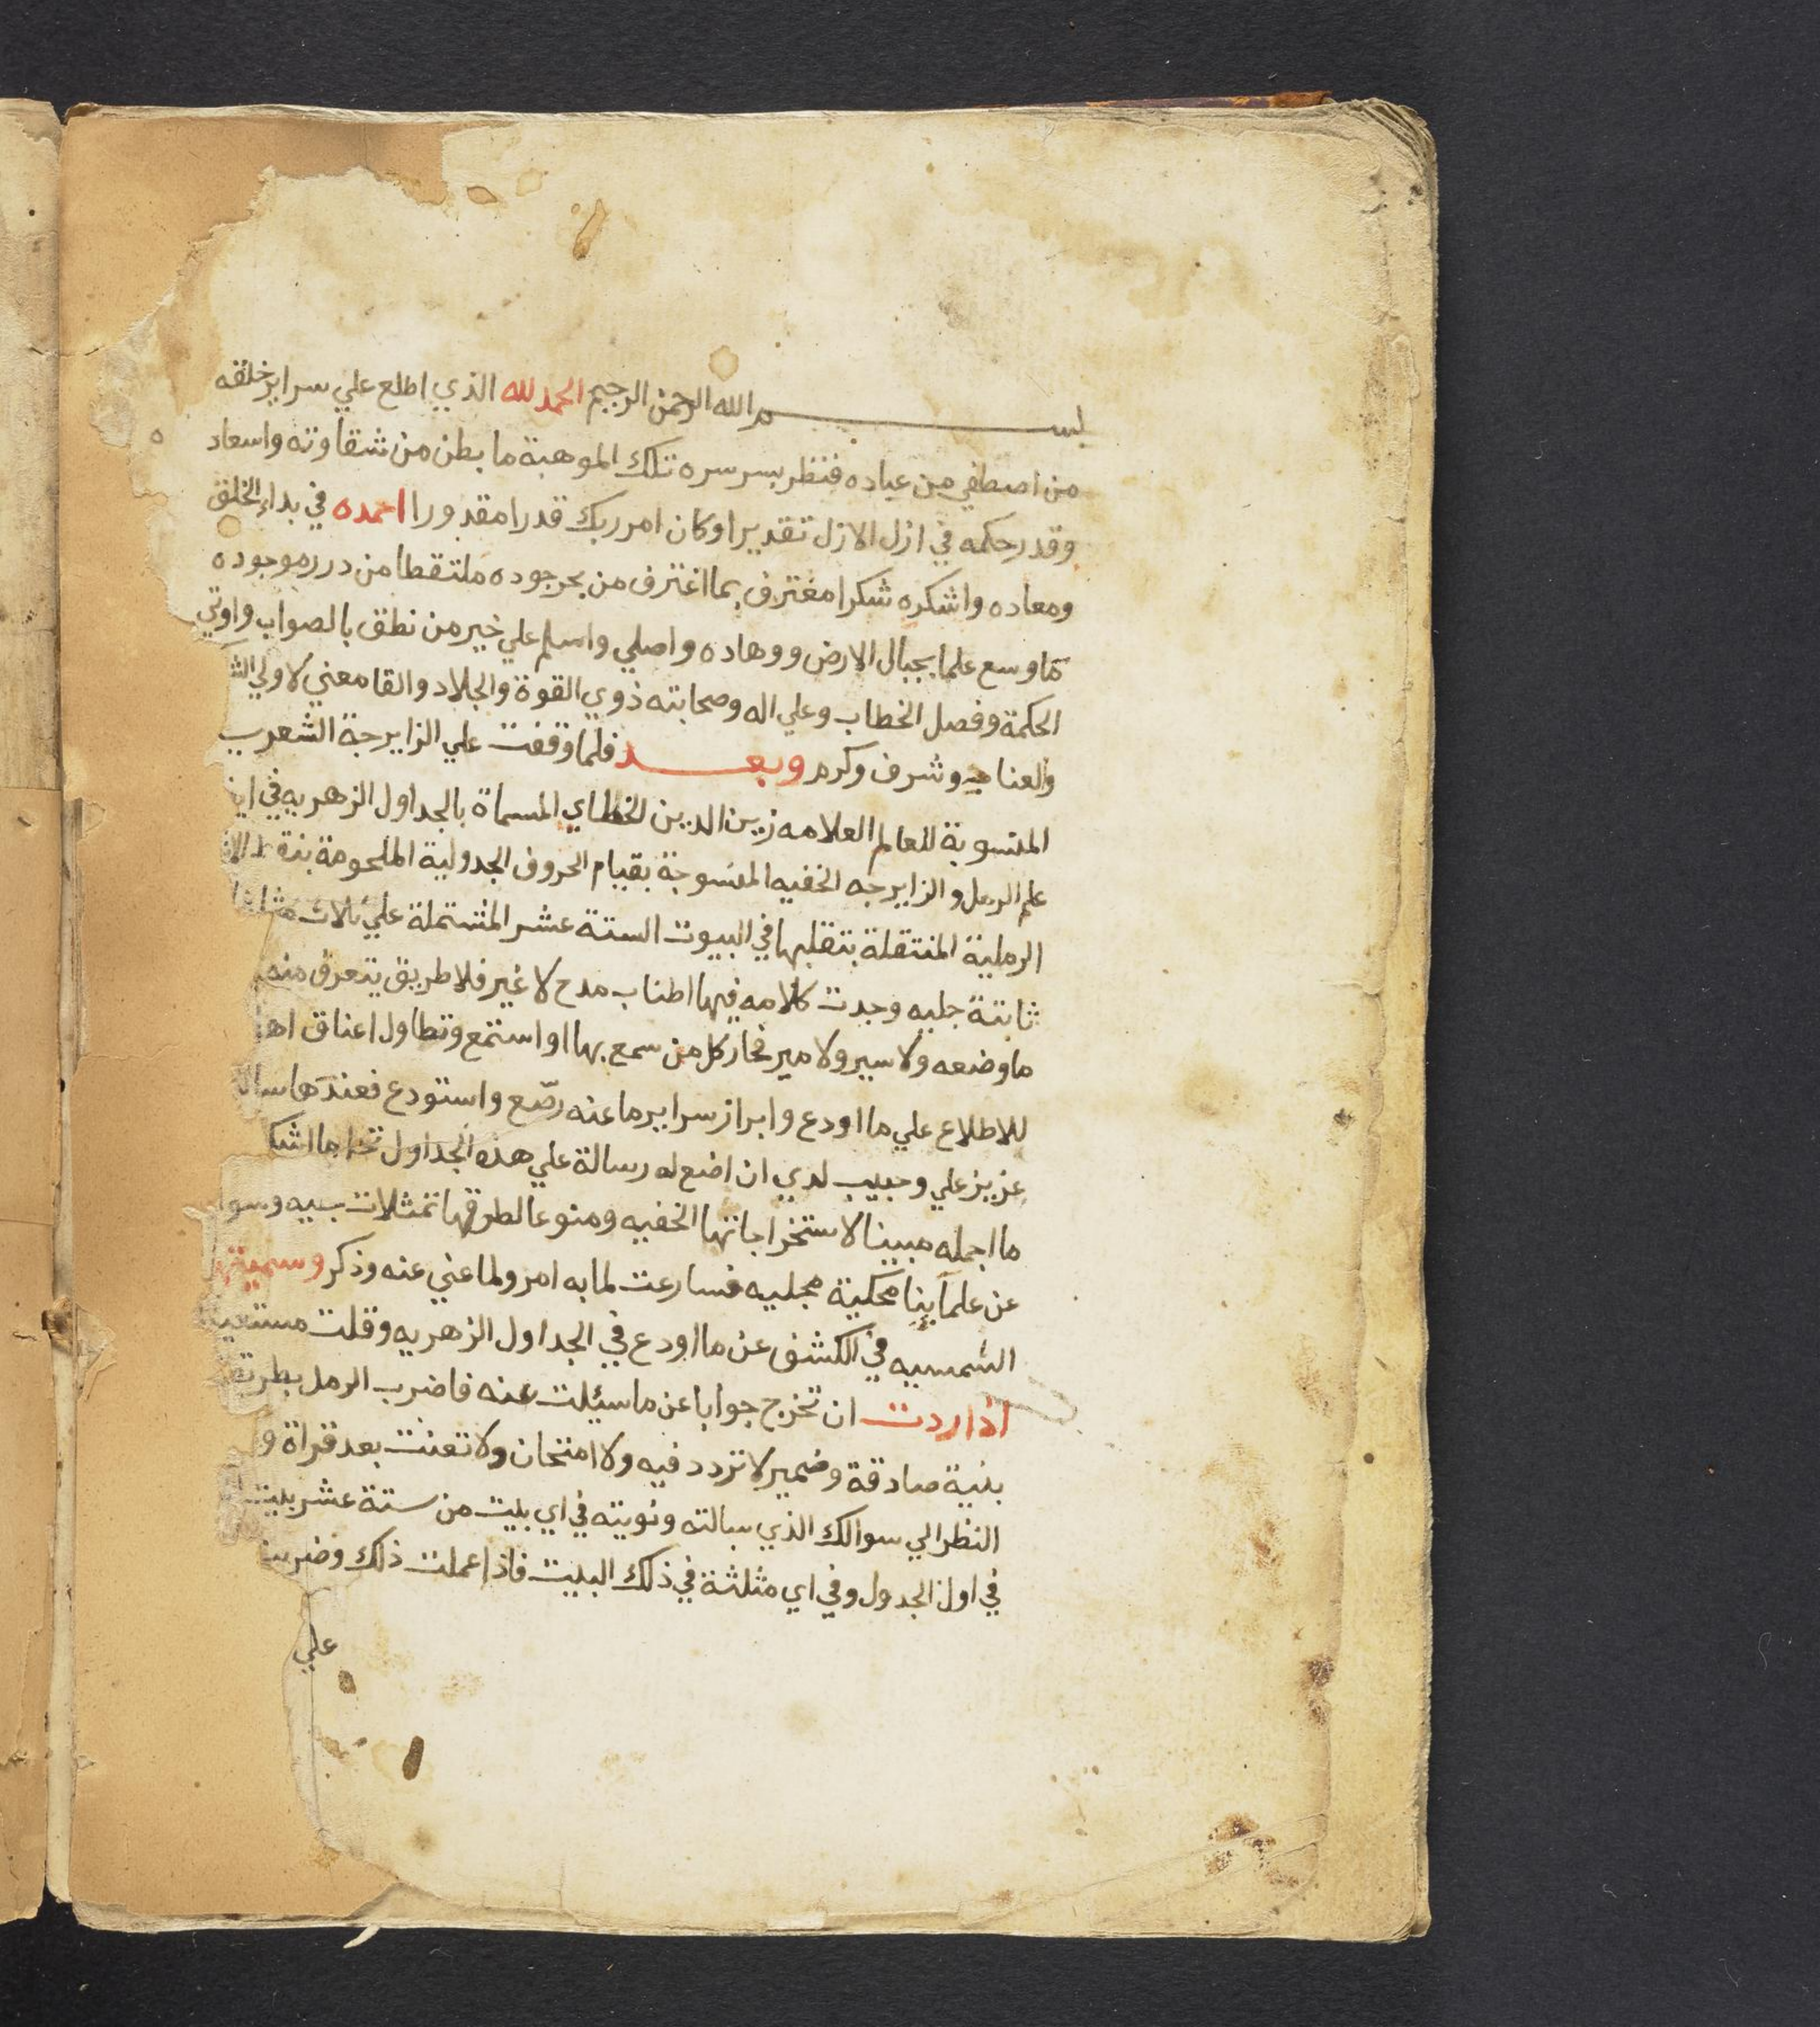 بسم الله الرحمن الرحيم الحمد لله الذي اطلع علي سراير خلقه
من اصطفي من عباده فنظر بسر سره تلك الموهبة ما بطن من شقاوته واسعاد
وقدر حكمه في ازل الازل تقديرا وكان امر ربك قدرا مقدورا احمده في بداء الخلق
ومعاده واشكره شكرا مغترف بما اغترف من بحر جوده ملتقطا من درر موجوده
ما وسع علما بجبال الارض ووهاده واصلي واسلم علي خير من نطق بالصواب واوتي
الحكمة وفصل الخطاب وعلي اله وصحابته ذوي القوة والجلاد والقا معني لاولي
والعناد وشرف وكرم وبعد فلما وقفت علي الزايرجة الشعري
المنسوبة للعالم العلامه زين الدين الخطاي المسماة بالجداول الزهريه في
علم الرمل والزايرجه الخفيه المنسوجة بقيام الحروف الجدولية الملحومة بنقط
الرملية المنتقلة بتقلبها في البيوت الستة عشر المشتملة علي ثلاث مثلثات
ثابتة جليه وجدت كلامه فيها اطناب مدح لا غير فلا طريق يتعرف منه
ما وضعه ولا سير ولا مير فحار كل من سمع بها او استمع وتطاول اعناق
للاطلاع علي ما اودع وابراز سراير ما عنه رصّع واستودع فعندها سالني
عزيز علي وحبيب لدي ان اضع له رسالة علي هذه الجداول
ما اجمله مبينا لاستخراجاتها الخفيه ومنوعا لطرقها تمثلات بسيه وسوا
عن علمآينا محكية مجليه فسارعت لما به امر ولما عني عنه وذكر وسميتها
الشمسيه في الكشف عن ما اودع في الجداول الزهريه وقلت مستعينا
اذا اردت ان تخرج جوابا عن ما سيئلت عنه فاضرب الرمل بطريقه
بنية صادقة وضمير لا تردد فيه ولا امتحان ولا تعنت بعد قراة
النظر الي سوالك الذي سالته ونويته في اي بيت من ستة عشر بيت
في اول الجدول وفي اي مثلثة في ذلك البيت فاذا عملت ذلك وضربت
علي